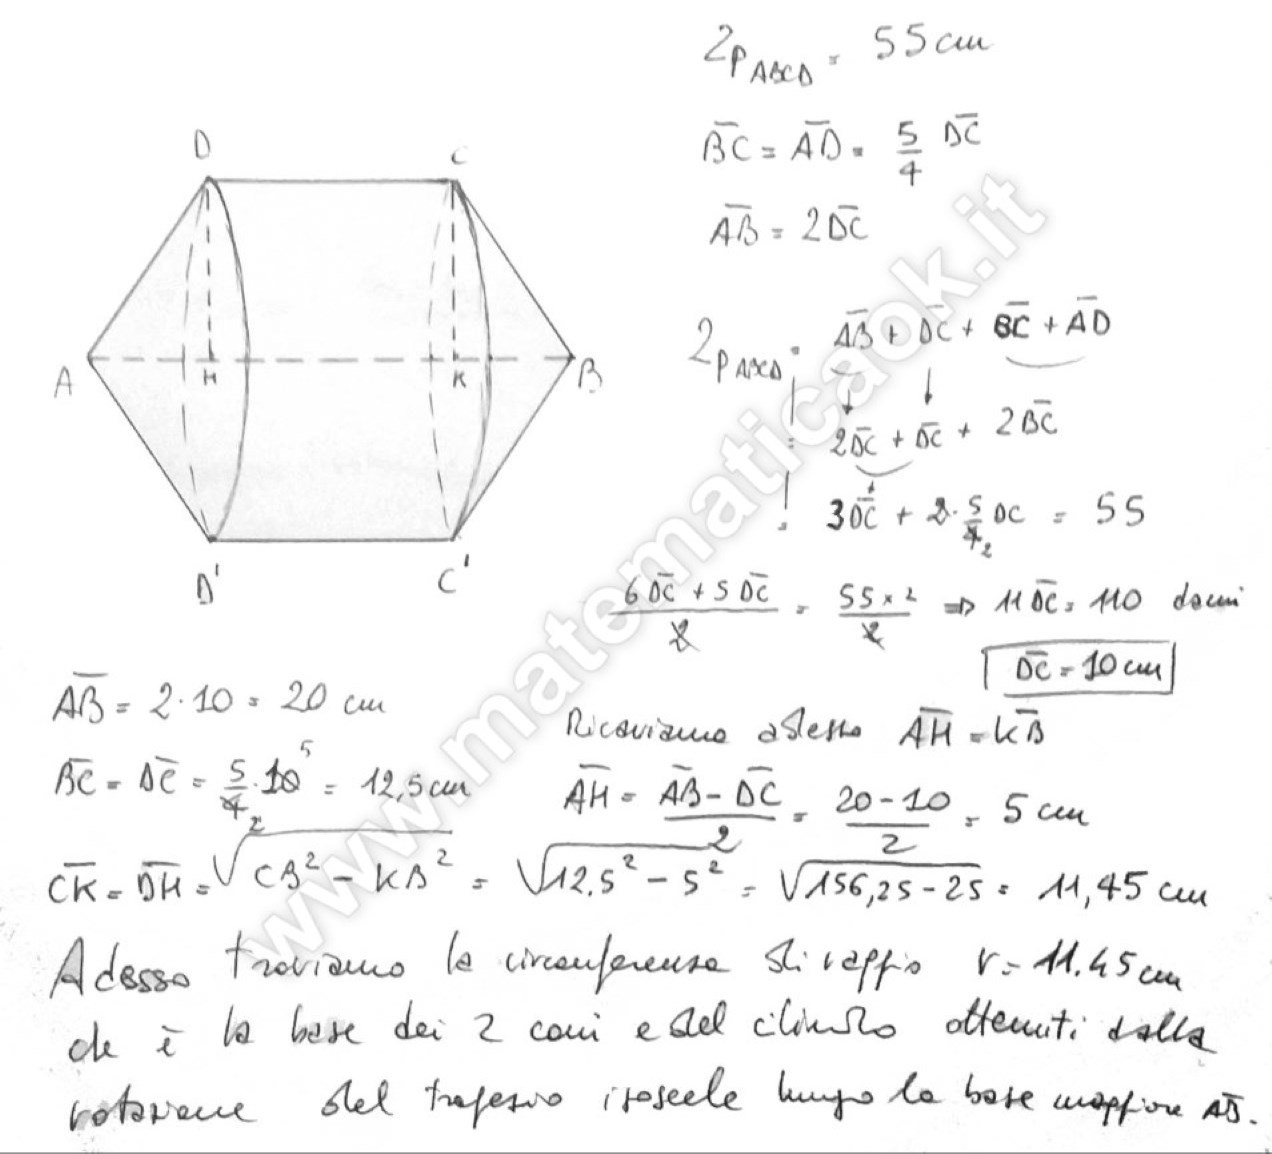 2PABCD = 55 cm
BC = AD = 5/4 DC
AB = 2DC
D C
A H K B
D' C'
2PABCD = AB + DC + BC + AD
= 2DC + DC + 2BC
= 3DC + 2·5/4 2 DC = 55
6DC + 5DC / 2 = 55 x 2 / 2 => 11DC = 110 da cui
DC = 10 cm
AB = 2·10 = 20 cm
Ricaviamo adesso AH = KB
BC = DC = 5/4 2 · 10 5 = 12,5 cm
AH = AB - DC / 2 = 20 - 10 / 2 = 5 cm
CK = DH = √CB² - KB² = √12.5² - 5² = √156,25 - 25 = 11,45 cm
Adesso troviamo la circonferenza di raggio r = 11.45 cm
che è la base dei 2 coni e del cilindro ottenuti dalla
rotazione del trapezio isoscele lungo la base maggiore AB.
www.matematicaok.it